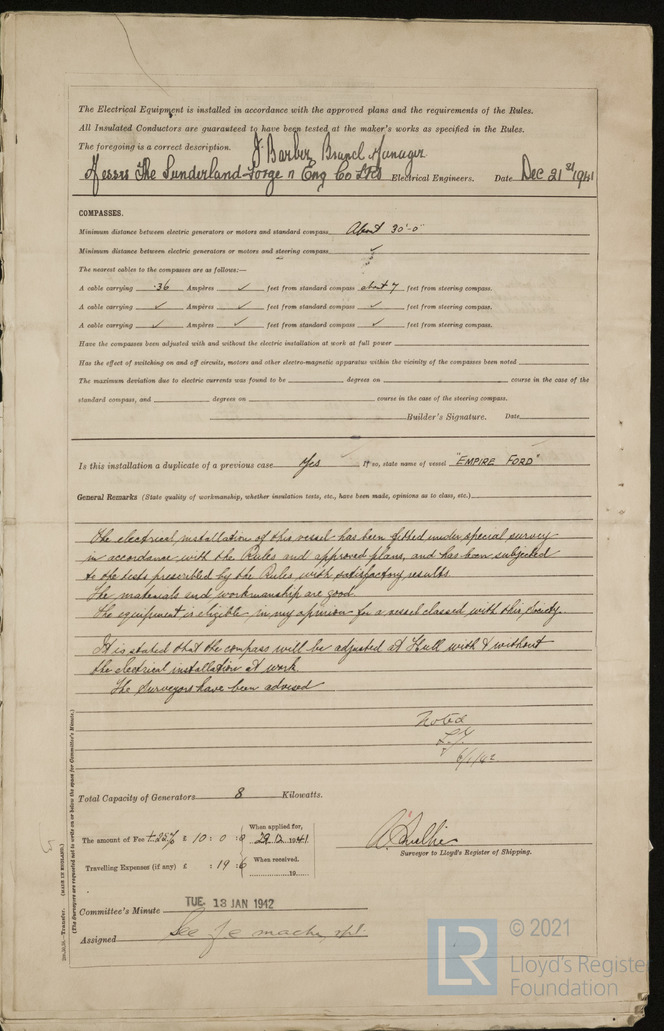 The Electrical Equipment is installed in accordance with the approved plans and the requirements of the Rules.
All Insulated Conductors are guaranteed to have been tested at the maker's works as specified in the Rules.
The foregoing is a correct description.
J. Barber Branch Manager
Messrs The Sunderland Forge & Eng Co Ltd Electrical Engineers. Date Dec 21st 1941
COMPASSES.
Minimum distance between electric generators or motors and standard compass About 30'-0"
Minimum distance between electric generators or motors and steering compass ✓
The nearest cables to the compasses are as follows:—
A cable carrying .36 Ampères ✓ feet from standard compass about 7 feet from steering compass.
A cable carrying ✓ Ampères ✓ feet from standard compass ✓ feet from steering compass.
A cable carrying ✓ Ampères ✓ feet from standard compass ✓ feet from steering compass.
Have the compasses been adjusted with and without the electric installation at work at full power
Has the effect of switching on and off circuits, motors and other electro-magnetic apparatus within the vicinity of the compasses been noted
The maximum deviation due to electric currents was found to be degrees on course in the case of the
standard compass, and degrees on course in the case of the steering compass.
Builder's Signature. Date
Is this installation a duplicate of a previous case Yes If so, state name of vessel "EMPIRE FORD"
General Remarks (State quality of workmanship, whether insulation tests, etc., have been made, opinions as to class, etc.)
The electrical installation of this vessel has been fitted under special survey
in accordance with the Rules and approved plans, and has been subjected
to the tests prescribed by the Rules, with satisfactory results.
The materials and workmanship are good.
The equipment is eligible, in my opinion for a vessel classed with this Society.
It is stated that the compass will be adjusted at Hull with & without
the electrical installation at work.
The Surveyors have been advised
Noted
6/1/42
Total Capacity of Generators 8 Kilowatts.
The amount of Fee +25% £ 10 : 0 : 8 When applied for, 29.12.1941
Travelling Expenses (if any) £ : 19 : 6 When received, 19
Surveyor to Lloyd's Register of Shipping.
Committee's Minute TUE. 13 JAN 1942
Assigned See F.E. mach. rpt.
Transfer. (MADE IN ENGLAND.)
(The Surveyors are requested not to write on or below the space for Committee's Minute.)
LR
© 2021
Lloyd's Register
Foundation